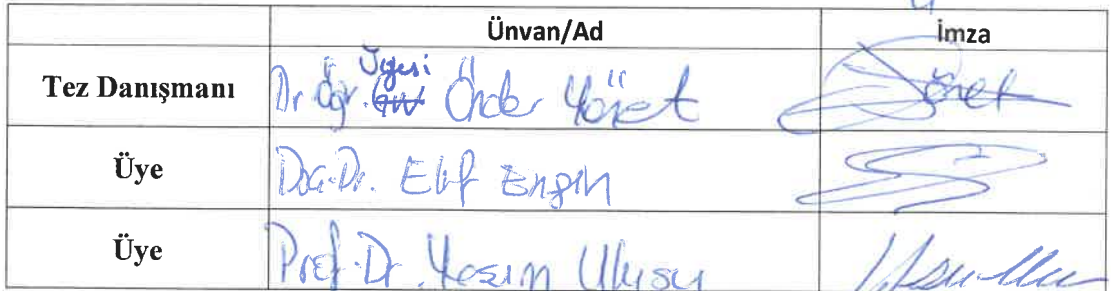 Ünvan/Ad İmza
Tez Danışmanı Dr. Öğr. Üyesi Önder Yöret
Üye Doç. Dr. Elif Engin
Üye Prof. Dr. Ulusu